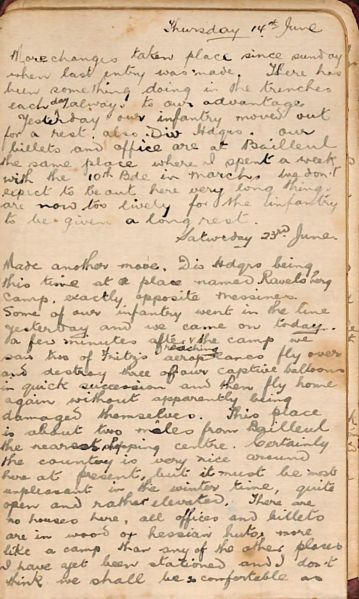 Thursday 14th June
More changes taken place since sunday
when last entry was made. There has
been something doing in the trenches
each day always to our advantage
Yesterday our infantry moved out
for a rest. also Div Hdqrs. our
billets and office are at Bailleul
the same place where I spent a week
with the 10th Bde in March. we don't
expect to be out here very long things
are now too lively for the infantry
to be given a long rest.
Saturday 23rd June
Made another move. Dis Hdqrs being
this time at a place named Ravelsberg
Camp, exactly opposite Messines.
Some of our infantry went in the line
yesterday and we came on today.
A few minutes after reaching the camp we
saw two of Fritz's aeroplanes fly over
and destroy three of our captive balloons
in quick succession and then fly home
again without apparently being
damaged themselves. This place
is about two miles from Bailleul
the nearest shopping centre. Certainly
the country is very nice around
here at present, but it must be most
unpleasant in the winter time, quite
open and rather elevated. There are
no houses here, all offices and billets
are in wood or hessian huts, more
like a camp than any of the other places
I have yet been stationed and I don't
think we shall be as comfortable as